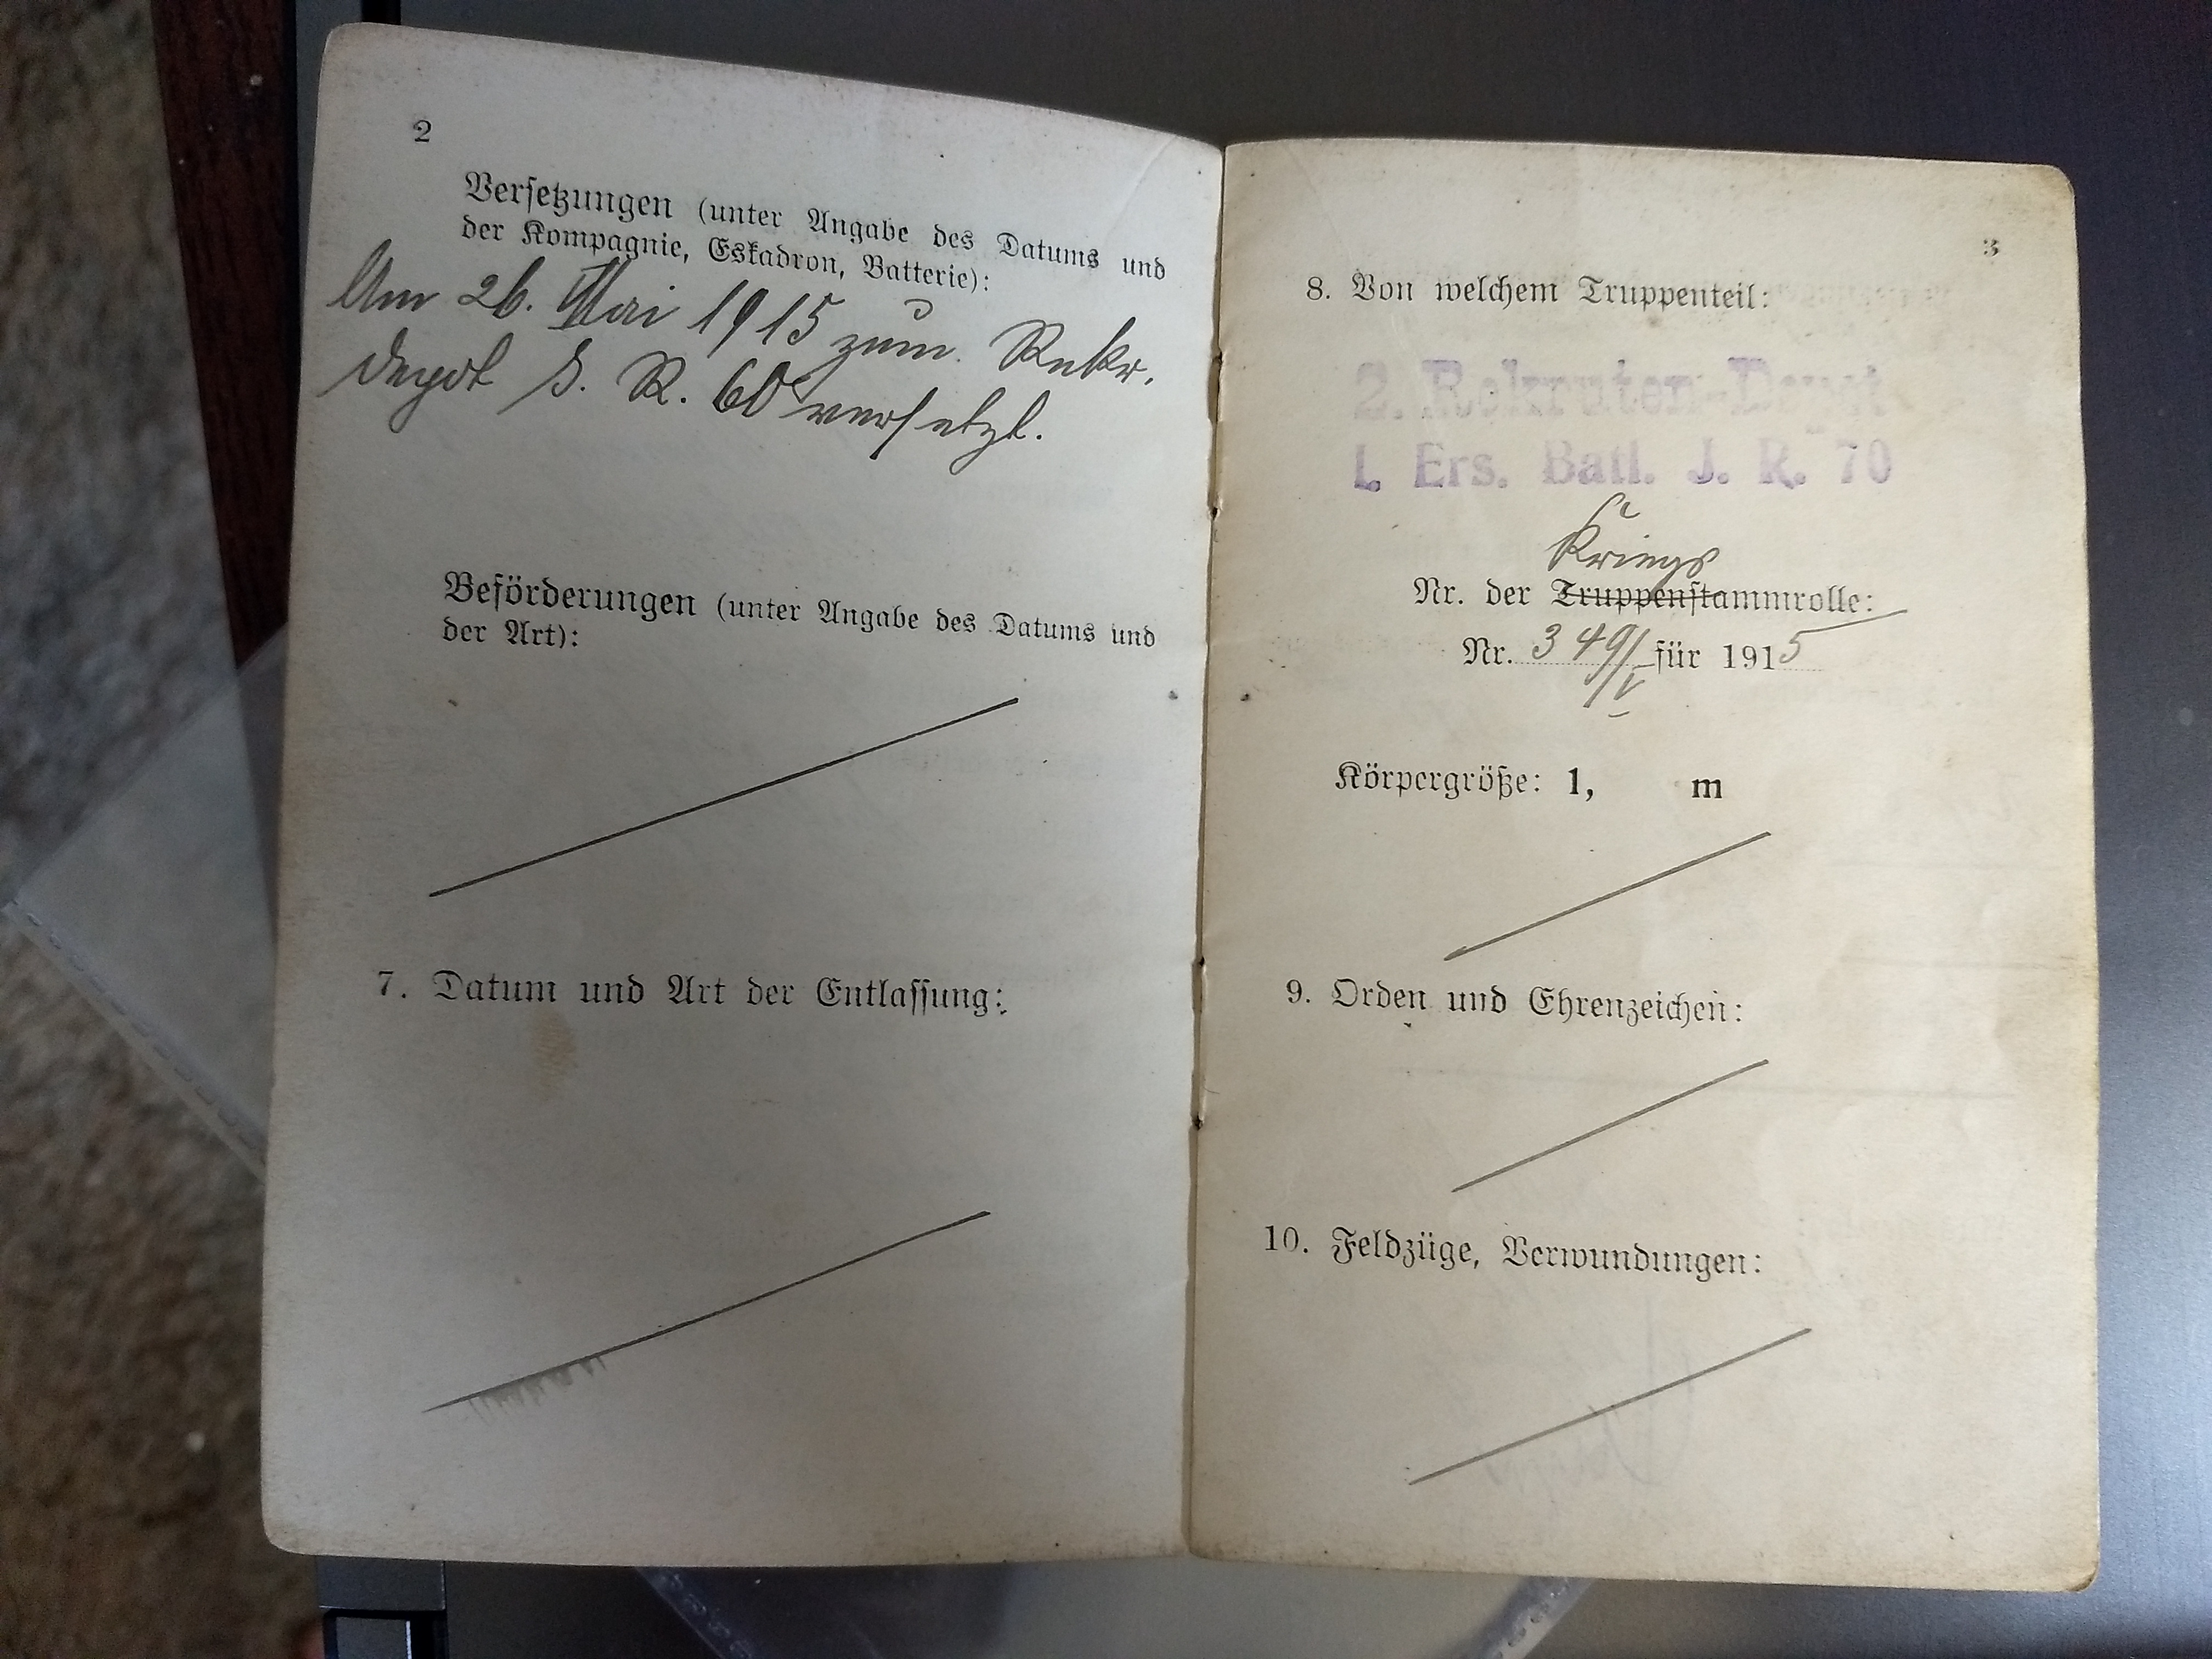 2
Versetzungen (unter Angabe des Datums und
der Kompagnie, Eskadron, Batterie):
Am 26. Mai 1915 zum Rekr.
Depot J. R. 60 versetzt.
Beförderungen (unter Angabe des Datums und
der Art):
7. Datum und Art der Entlassung:
3
8. Von welchem Truppenteil:
2. Rekruten-Depot
I. Ers. Batl. J. R. 70
Kriegs
Nr. der Truppenstammrolle:
Nr. 349/I für 1915
Körpergröße: 1, m
9. Orden und Ehrenzeichen:
10. Feldzüge, Verwundungen: